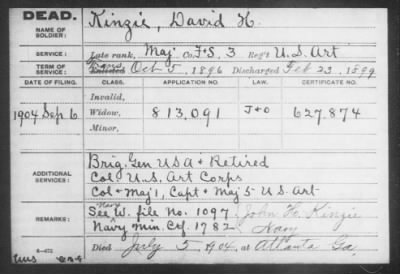 DEAD.
NAME OF SOLDIER: Kinzie, David H.
SERVICE: Late rank, Maj Co. F+S, 3 Reg't U.S. Art
TERM OF SERVICE: Enlisted Oct 5, 1896 Discharged Feb 23, 1899
DATE OF FILING. CLASS. APPLICATION NO. LAW. CERTIFICATE NO.
Invalid,
1904 Sep 6 Widow, 813,091 J+O 627,874
Minor,
ADDITIONAL SERVICES: Brig Gen USA + Retired
Col U.S. Art Corps
Col + Maj 1, Capt + Maj 5 U.S. Art
REMARKS: See Navy W. file No. 1097. John H. Kinzie
Navy Min. Ctf. 1782. Navy
Died July 5, 1904, at Atlanta Ga,